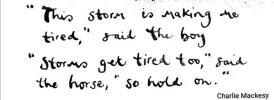 "This storm is making me
tired," said the boy
"Storms get tired too," said
the horse, "so hold on."
Charlie Mackesy